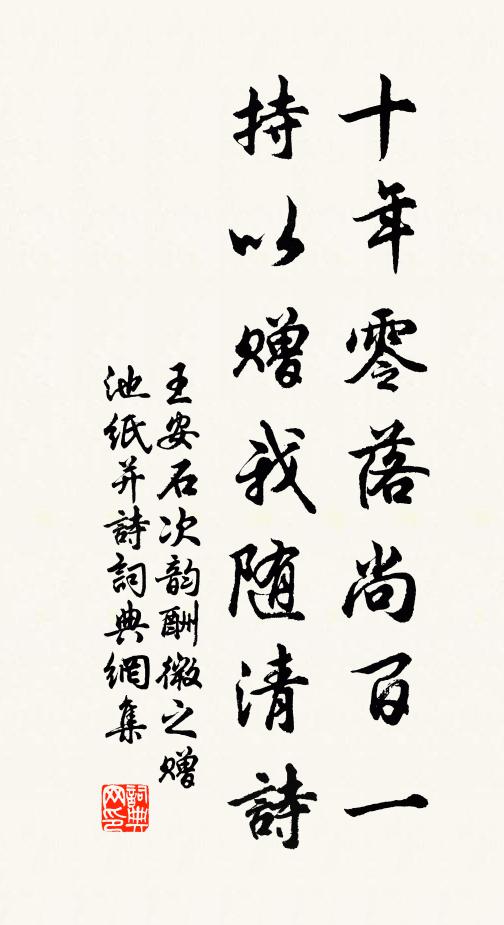 十年零落尚百一
持以赠我随清詩
王安石次韵酬微之赠
池紙并詩詞典網集
詞典
网印